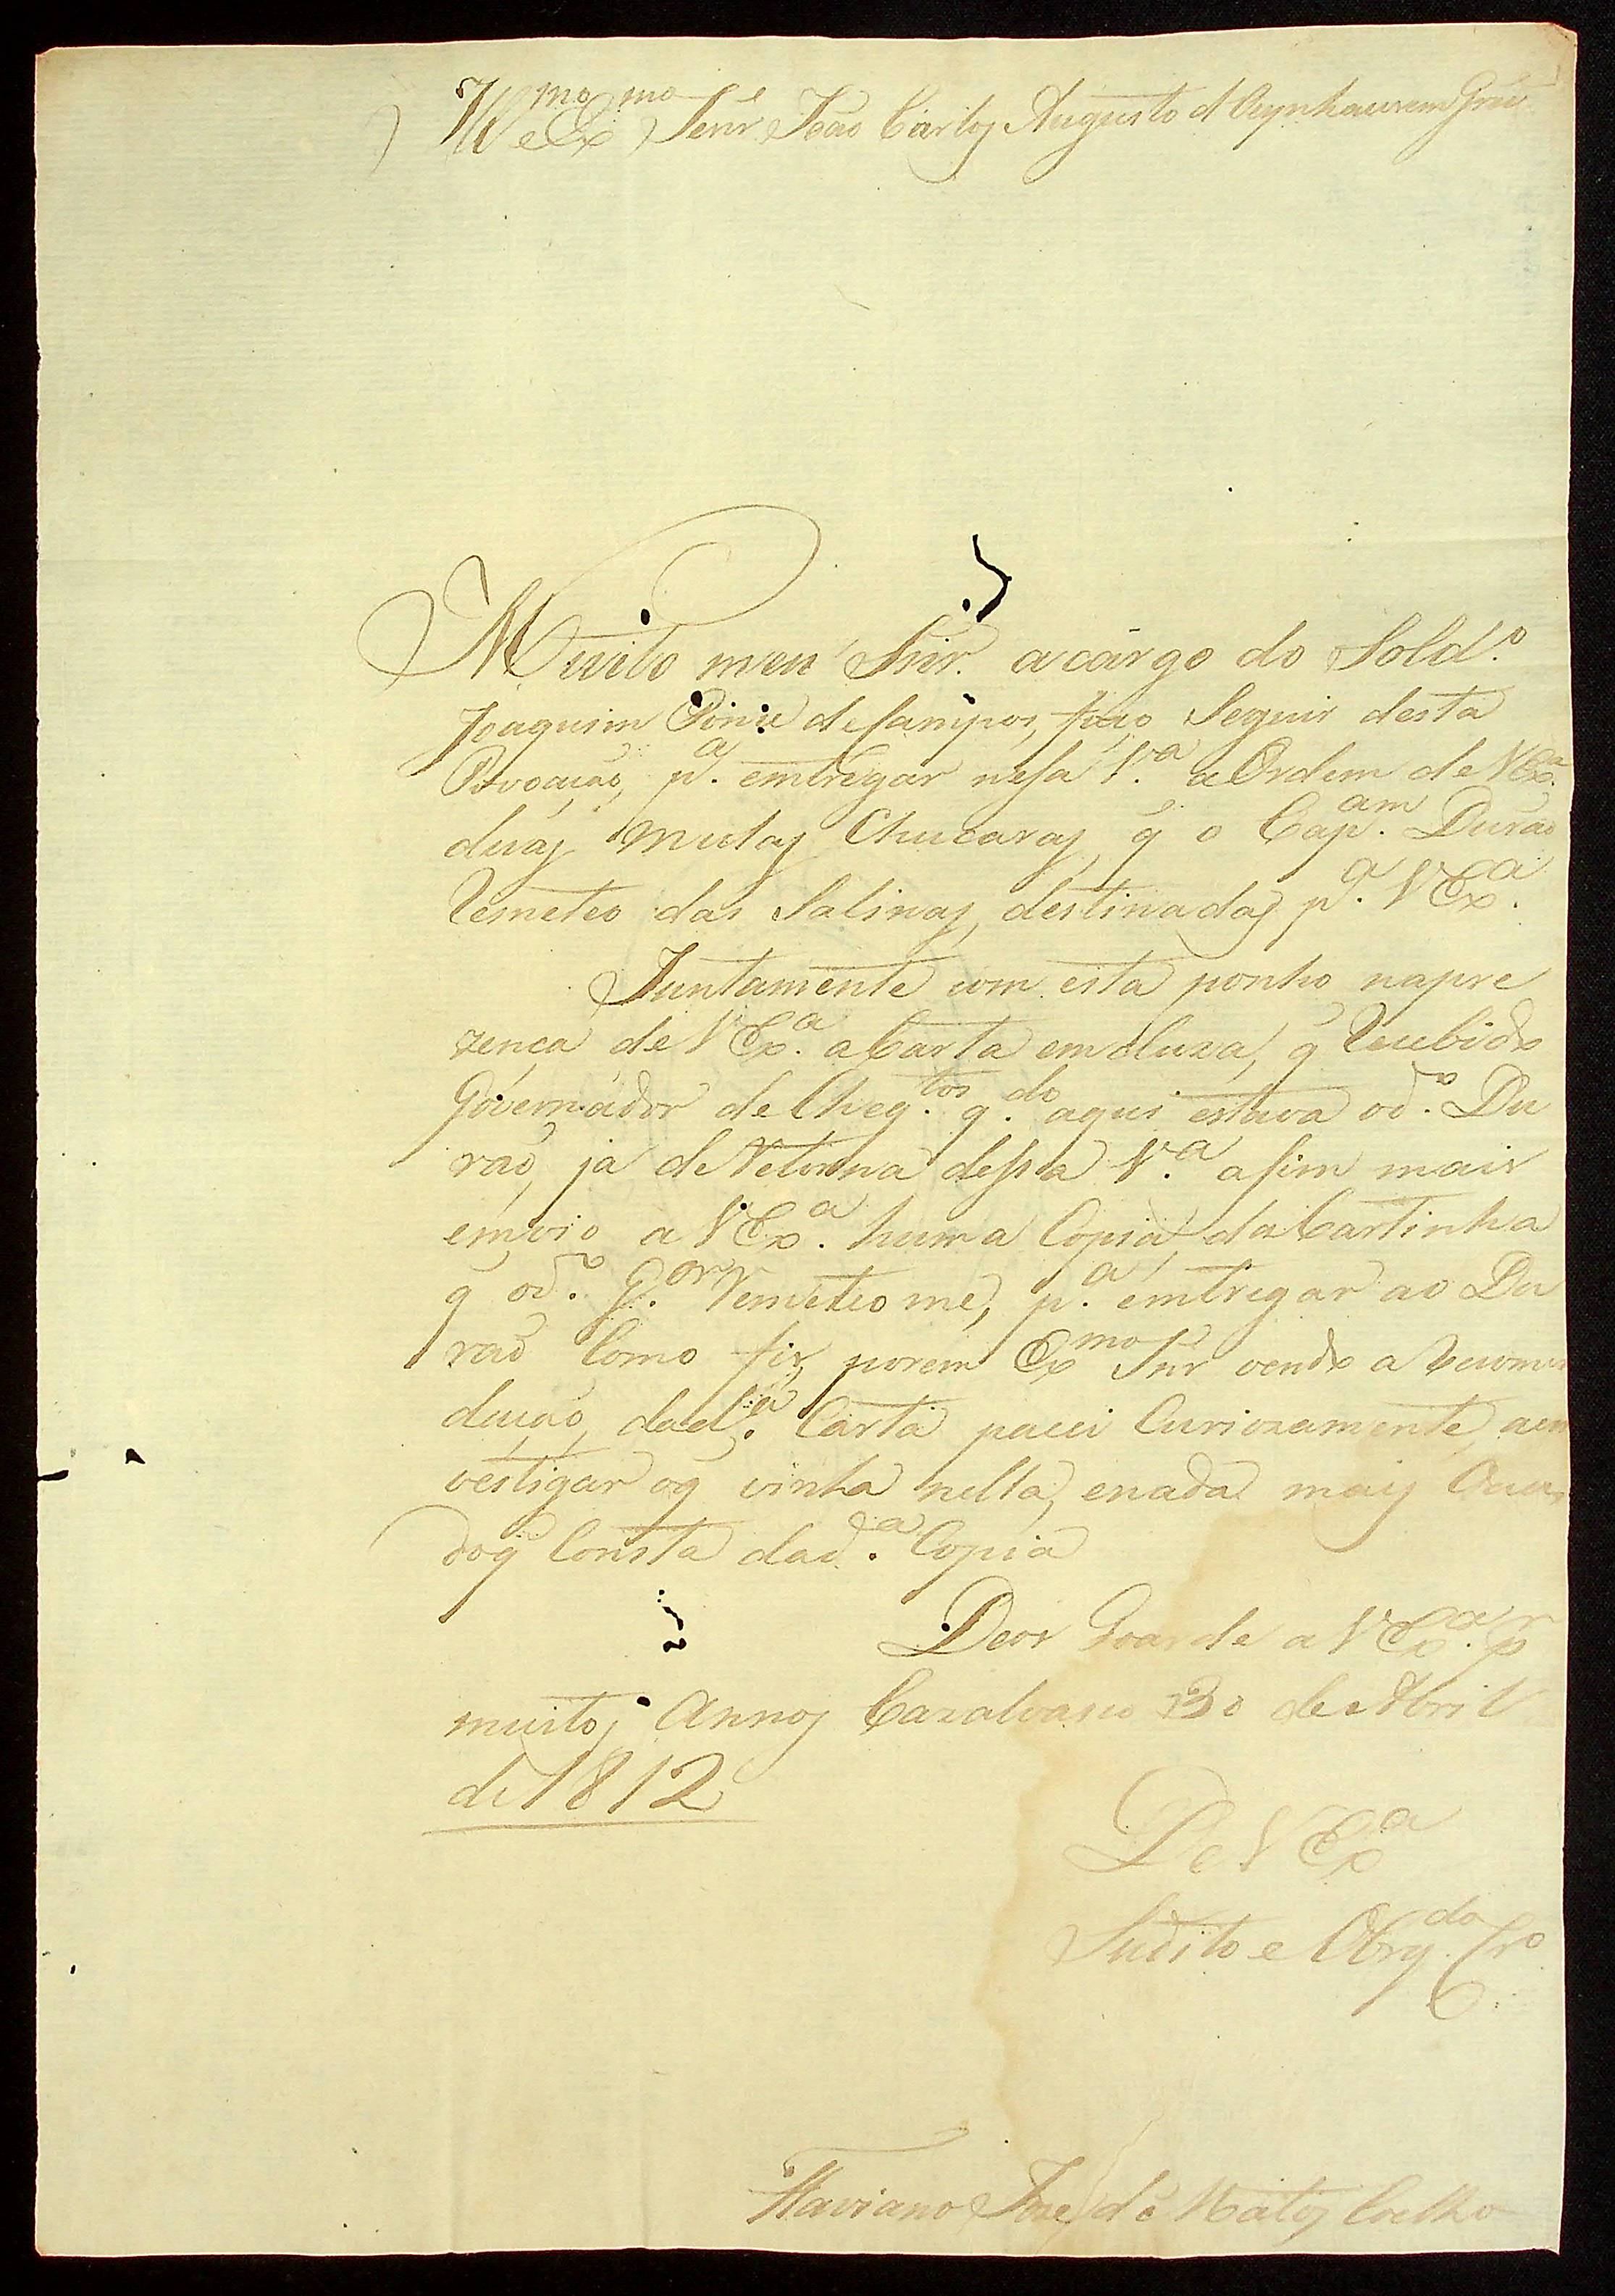 Ill.mo e Ex.mo Senr João Carlos Augusto d Oynhausem
Muito meu Snr. acargo do Sold.o
Joaquim deCampos, faço Seguir desta
Povoação, p.a entregar nesa V.a a Ordem de VEx.a
duas Mulas Chucaras, q̃ o Cap.am Durão
Remeteo das Salinas, destinadas p.a VEx.a
Juntamente com esta ponho napre
zenca de VEx.a aCarta emcluza, q̃ Recebi do
Governador de Cheq.tos q.do aqui estava od.o Du
rão, ja de Retorna dessa V.a asim mais
emvio a VEx.a huma Copia da Cartinha
q̃ od.o G.or Remeteome, p.a emtregar ao Du
rão Como fiz, porem Ex.mo Snr vendo a
dação, dad.a Carta pacei Curiozamente,
vestigar oq̃ vinha nella, enada mais
doq̃ Consta dad.a Copia
Deos Goarde a VEx.a p.r
muitos Annos Cazalvasco 30 de Abril
de 1812
De VEx.a
Sudito e Obrg.do Cr.o
Flaviano Joze de Matos Coelho